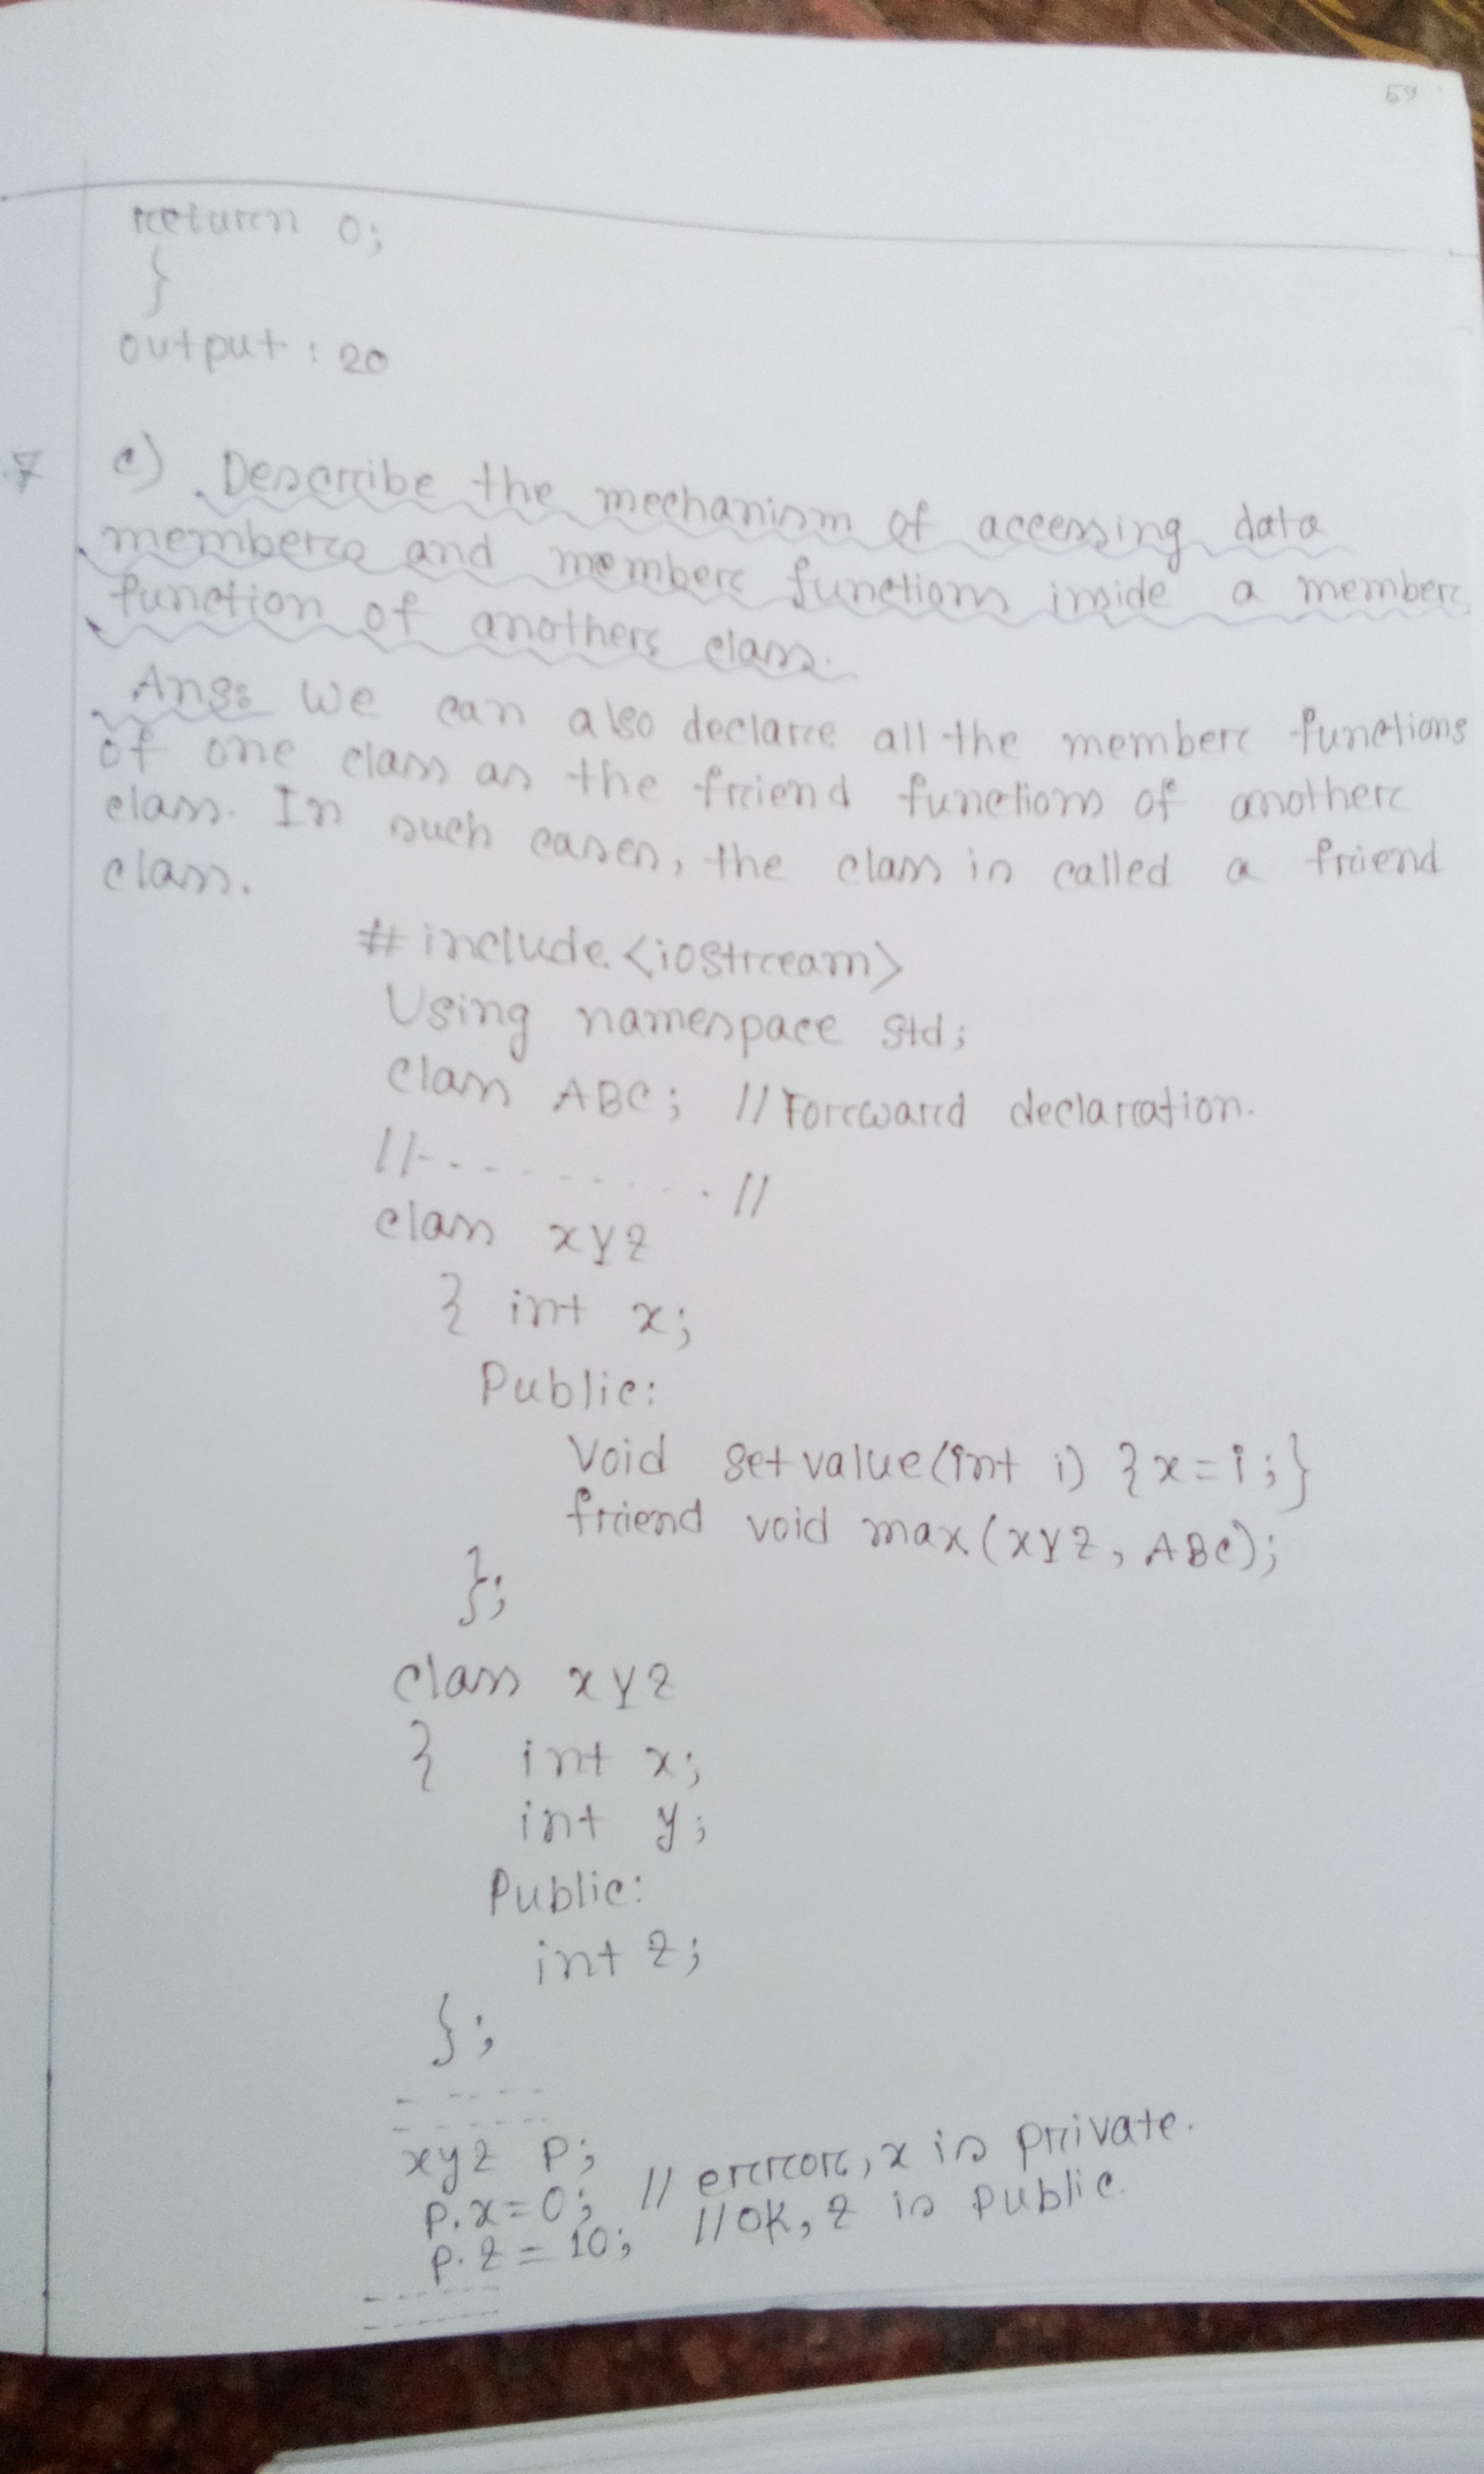 59
return 0;
}
output : 20
7 c) Describe the mechanism of accessing data
members and member functions inside a member
function of another class.
Ans: We can also declare all the member functions
of one class as the friend functions of another
class. In such cases, the class is called a friend
class.
# include <iostream>
Using namespace std;
class ABC; // Forward declaration.
//- - - - - - - - - //
class xyz
{ int x;
Public:
Void setvalue(int i) {x=i;}
friend void max(xyz, ABC);
};
class xyz
{ int x;
int y;
Public:
int z;
};
- - - - -
- - - - -
xyz P;
P.x=0; // error, x is private.
P.z = 10; // OK, z is public.
- - - - -
- - - - -